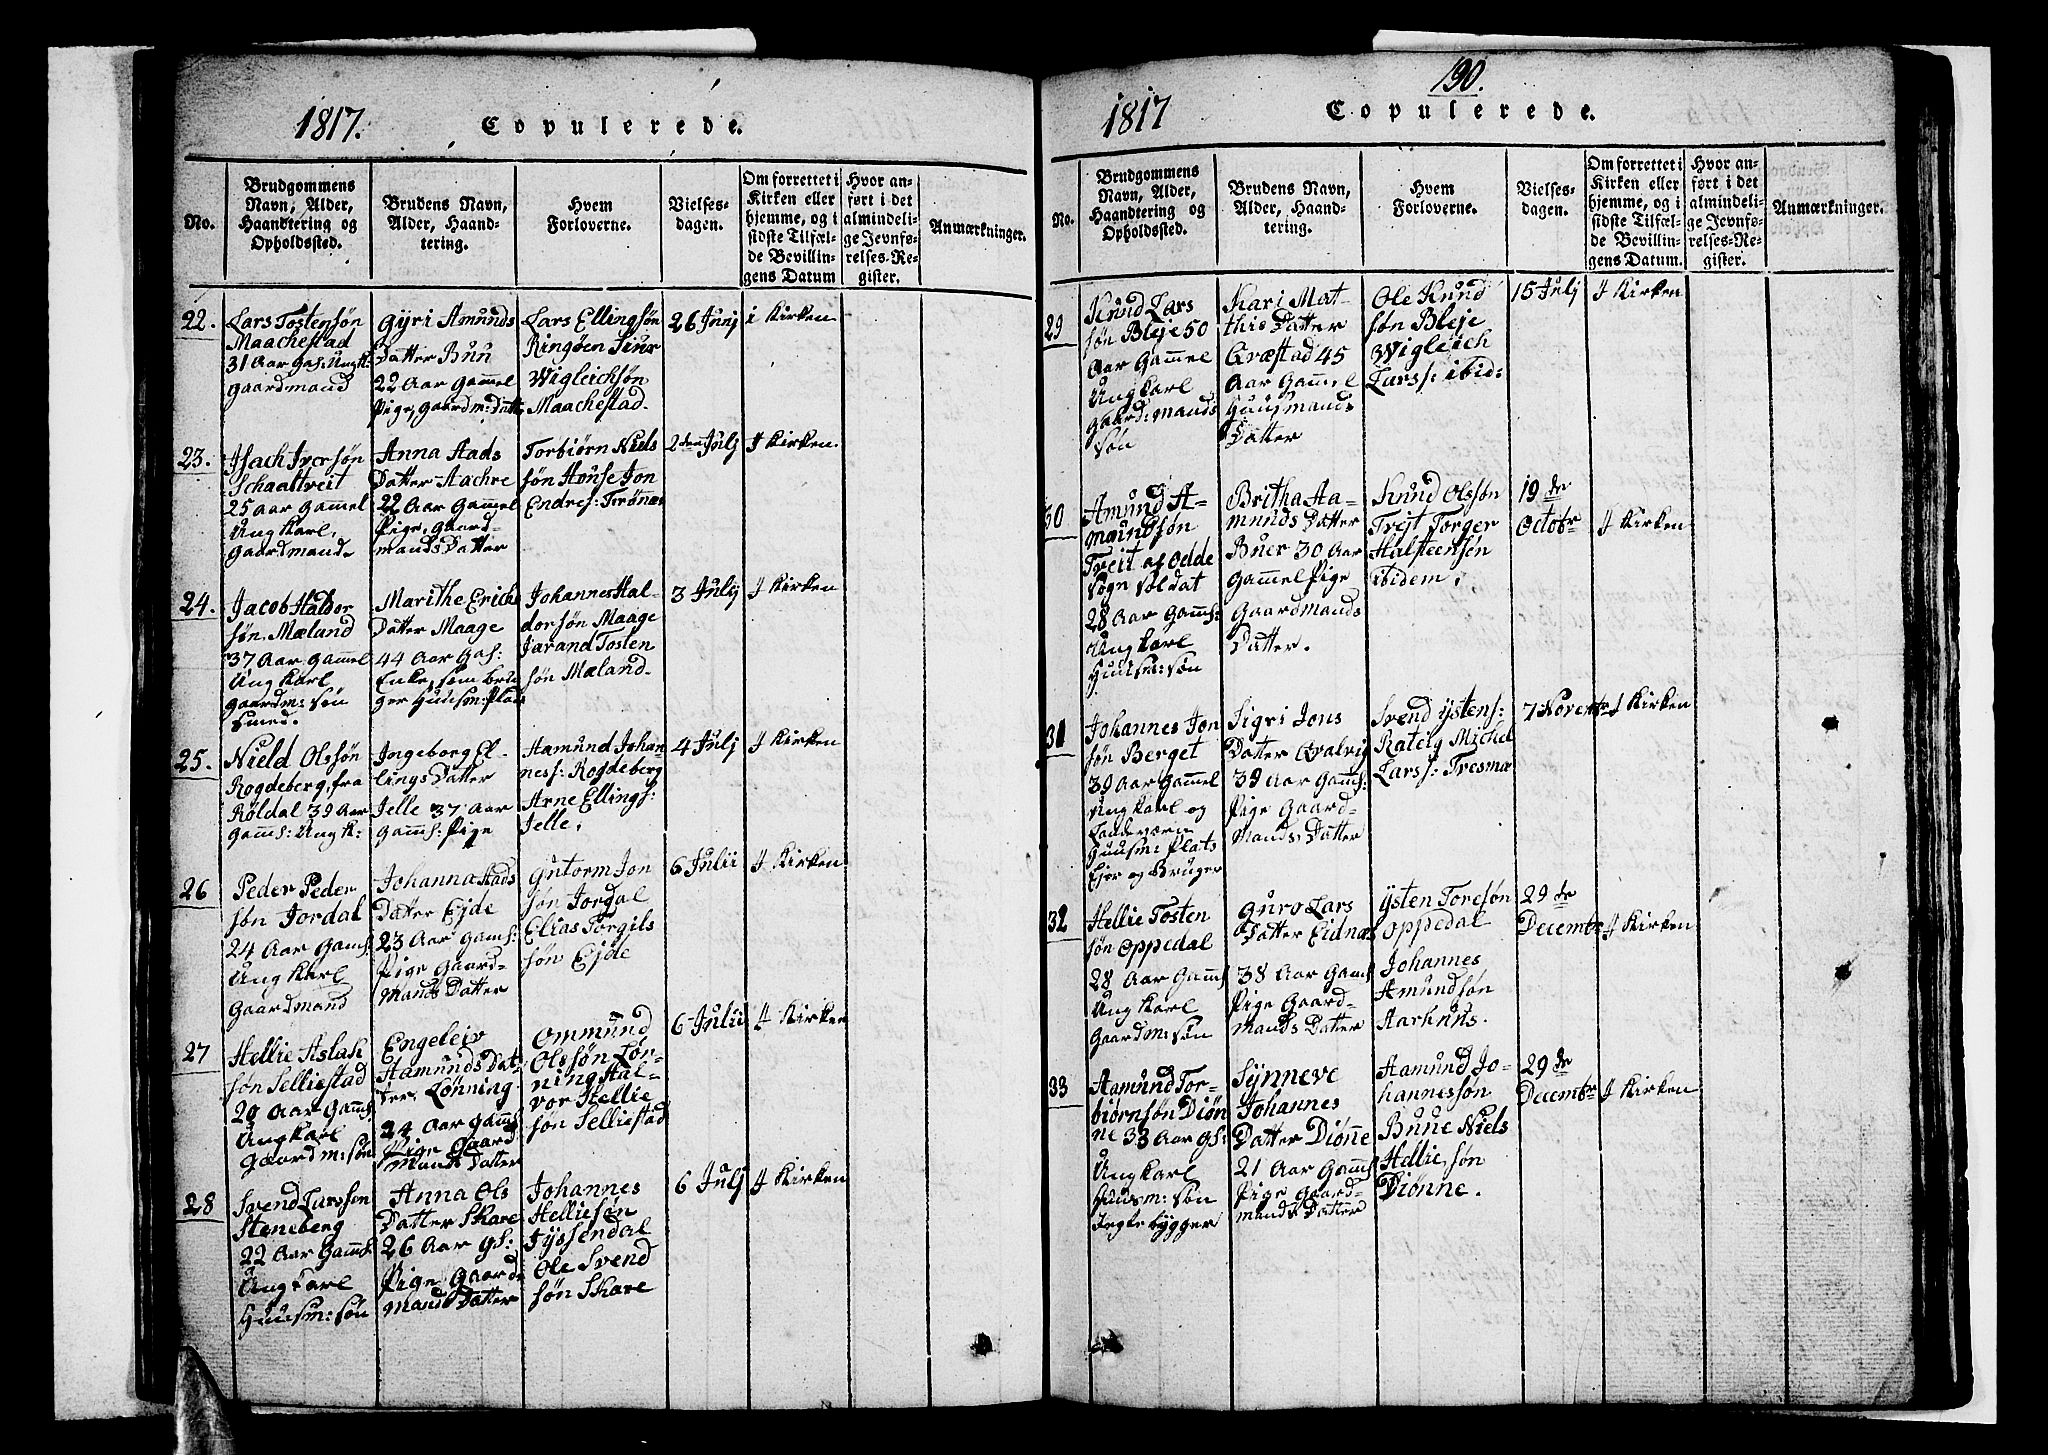 1817. Copulerede.
No.
Brudgommens
Navn, Alder,
Haandtering og
Opholdssted.
Brudens Navn,
Alder, Haand-
tering.
Hvem
Forloverne.
Vielses-
dagen.
Om forrettet i
Kirken eller
hjemme, og i
sidste Tilfæl-
de Bevillin-
gens Datum
Hvor an-
ført i det
almindeli-
ge Jevnfø-
relses-Re-
gister.
Anmærkninger.
22.
Lars Tostensøn
Maachestad
31 Aar Gas: Ungk:
gaardmand
Gyri Amunds
Datter Buu
22 Aar Gammel
Pige, Gaardm: Datt:
Lars Ellingsøn
Ringøen Siur
Wigleichsøn
Maachestad.
26 Junj
i Kirken
23.
Isach Iversøn
Schaaltveit
25 Aar Gammel
Ung Karl,
Gaardmand
Anna Aads
Datter Aachre
22 Aar Gammel
Pige, Gaard-
mands Datter
Torbiørn Niels
søn Hause Jon
Endres: Tronæs
2den Julj
I Kirken.
24.
Jacob Haldor
søn Mæland
37 Aar Gammel
Ung Karl
gaardm: søn
Smed.
Marithe Erichs
Datter Maage
44 Aar Gas:
Enke, som bru
ger Huusm: Plads
Johannes Hal-
dorsøn Maage
Jarand Tosten
søn Mæland.
3 Julij
I Kirken
25.
Nield Olssøn
Rogdeberg, fra
Røldal 39 Aar
Gamms: Ungk:
Ingeborg El-
lings Datter
Jelle 37 Aar
Gamms: Pige
Aamund Johan
ness: Rogdeberg
Arne Ellings:
Jelle,
4 Julj
I Kirken
26
Peder Peder
søn Jordal
24 Aar Gams:
Ung Karl
Gaardmand
Johanna Aads
Datter Ejde
23 Aar Gams:
Pige Gaard-
mands Datter
Gutorm Jon
søn Jordal
Elias Torgils
søn Ejde
6 Julii
I Kirken
27
Hellie Aslak
søn Selliestad
29 Aar Gamms:
Ung Karl
Gaardm: søn
Engeleiv
Aamunds Dat
ter, Lønning
24 Aar Gamms
Pige Gaard
mands Datter
Ommund
Olssøn Løn-
ning Hal-
vor Hellie
søn Selliestad
6 Julii
I Kirken
28
Svend Larssøn
Steneberg
22 Aar Gamms:
Ung Karl
Huusm: søn
Anna Ols
Datter Skare
26 Aar gs:
Pige Gaard
mands Datter
Johannes
Helliesøn
Jyssendal
Ole Svend
søn Skare
6 Julj
I Kirken
190.
1817 Copulerede.
No.
Brudgommens
Navn, Alder,
Haandtering og
Opholdssted.
Brudens Navn,
Alder, Haand-
tering.
Hvem
Forloverne.
Vielses-
dagen.
Om forrettet i
Kirken eller
hjemme, og i
sidste Tilfæl-
de Bevillin-
gens Datum.
Hvor an-
ført i det
almindeli-
ge Jevnfø-
relses-Re-
gister.
Anmærkninger.
29
Knud Lars
søn Bleje 50
Aar Gammel
Ungkarl
gaard: mands
søn
Kari Mat-
this Datter
Græstad 45
Aar Gammel
Huusmands
Datter
Ole Knud
søn Bleje
Wigleich
Larss: ibid:
15 Julj
I Kirken
30
Amund A-
mundsøn
Treit af Odde
Sogn Soldat
28 Aar Gamms:
Ungkarl
Huusm: søn
Britha Aa-
munds Datter
Buer 30 Aar
Gammel Pige
Gaardmands
Datter.
Knud Olssøn
Trejt Torger
Halsteensøn
ibidem,
19de
Octobr
I Kirken
31
Johannes Jon
søn Berget
39 Aar Gammel
Ungkarl og
Landeværn
Huusm: Plats
Ejer og Bruger
Sigri Jons
Datter Qvalvig
39 Aar Gamms:
Pige Gaard-
Mands Datter
Svend Ystens:
Rateig Michel
Larss: Tresmæ
7 Novembr
I Kirken
32
Hellie Tosten
søn Oppedal
28 Aar Gamms
Ung Karl
Gaardm: søn
Guro Lars
Datter Eidnæs
38 Aar Gams
Pige Gaard-
mands Datter
Ysten Toresøn
Oppedal
Johannes
Amundsøn
Aarhnts.
29de
Decembr
I Kirken
33
Aamund Tor-
biørnsøn Diøn
ne 33 Aar gs:
Ungkarl
Huusm: søn
Jegtebygger
Synneve
Johannes
Datter Diønne
21 Aar Gamms
Pige Gaard-
mands Datter
Aamund Jo-
hannessøn
Bune Niels
Helliesøn
Diønne.
29de
Decembr
I Kirken